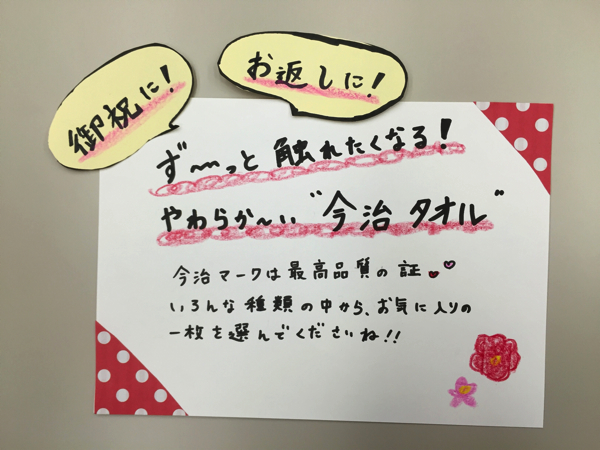 御祝に!
お返しに!
ず〜〜っと 触れたくなる!
やわらか〜い "今治 タオル"
今治マークは最高品質の証
いろんな種類の中から、お気に入りの
一枚を選んでくださいね!!